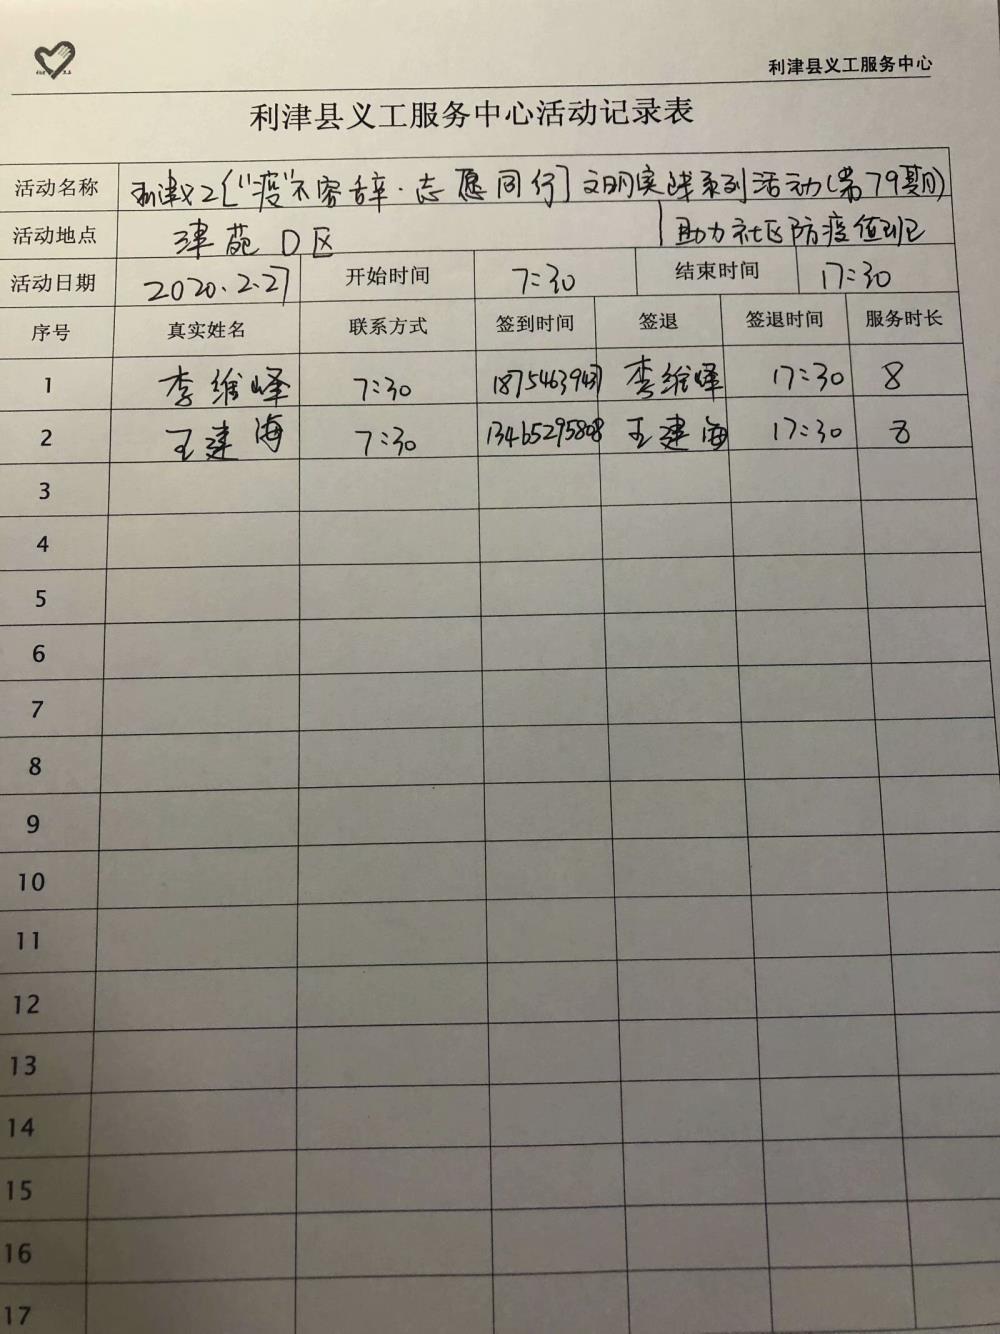 利津县义工服务中心
利津县义工服务中心活动记录表
活动名称 利津义工〔“疫”不容辞·志愿同行〕文明实践系列活动(第79期)
活动地点 津苑D区 助力社区防疫值班
活动日期 2020.2.27 开始时间 7:30 结束时间 17:30
序号 真实姓名 联系方式 签到时间 签退 签退时间 服务时长
1 李维峰 7:30 18754639437 李维峰 17:30 8
2 王建海 7:30 13465295808 王建海 17:30 8
3
4
5
6
7
8
9
10
11
12
13
14
15
16
17